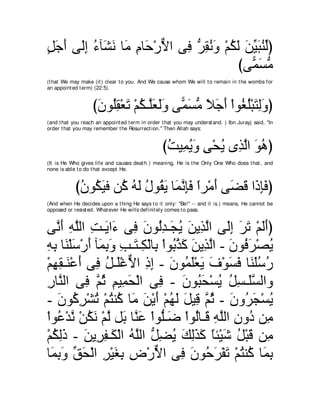 (لِّنُبَيِّنَ لَكُمْ وَنُقِرُّ فِى الاٌّرْحَامِ مَا نَشَآءُ إِلَى أَجَلٍ
مُّسَمًّى)
(that We may make (it) clear to you. And We cause whom We will to remain in the wombs for
an appointed term) (22:5).
(وَلِتَبْلُغُواْ أَجَلاً مُّسَمًّى وَلَعَلَّكُمْ تَعْقِلُونَ)
(and that you reach an appointed term in order that you may understand. ) Ibn Jurayj said, "In
order that you may remember the Resurrection.'' Then Allah says:
(هُوَ الَّذِى يُحْىِ وَيُمِيتُ)
(It is He Who gives life and causes death.) meaning, He is the Only One Who does that, and
none is able to do that except He.
(فَإِذَا قَضَى أَمْراً فَإِنَّمَا يَقُولُ لَهُ كُن فَيَكُونُ)
(And when He decides upon a thing He says to it only: "Be!'' -- and it is.) means, He cannot be
opposed or resisted. Whatever He wills definitely comes to pass.
(أَلَمْ تَرَ إِلَى الَّذِينَ يُجَـدِلُونَ فِى ءَايَـتِ اللَّهِ أَنَّى
يُصْرَفُونَ - الَّذِينَ كَذَّبُواْ بِالْكِـتَـبِ وَبِمَآ أَرْسَلْنَا بِهِ
رُسُلَنَا فَسَوْفَ يَعْلَمُونَ - إِذِ الاٌّغْلَـلُ فِى أَعْنَـقِهِمْ
والسَّلَـسِلُ يُسْحَبُونَ - فِى الْحَمِيمِ ثُمَّ فِى النَّارِ
يُسْجَرُونَ - ثُمَّ قِيلَ لَهُمْ أَيْنَ مَا كُنتُمْ تُشْرِكُونَ -
مِن دُونِ اللَّهِ قَـالُواْ ضَـلُّواْ عَنَّا بَل لَّمْ نَكُنْ نَّدْعُواْ
مِن قَبْلُ شَيْئاً كَذَلِكَ يُضِلُّ اللَّهُ الْكَـفِرِينَ - ذَلِكُمْ
بِمَا كُنتُمْ تَفْرَحُونَ فِى الاٌّرْضِ بِغَيْرِ الْحَقِّ وَبِمَا